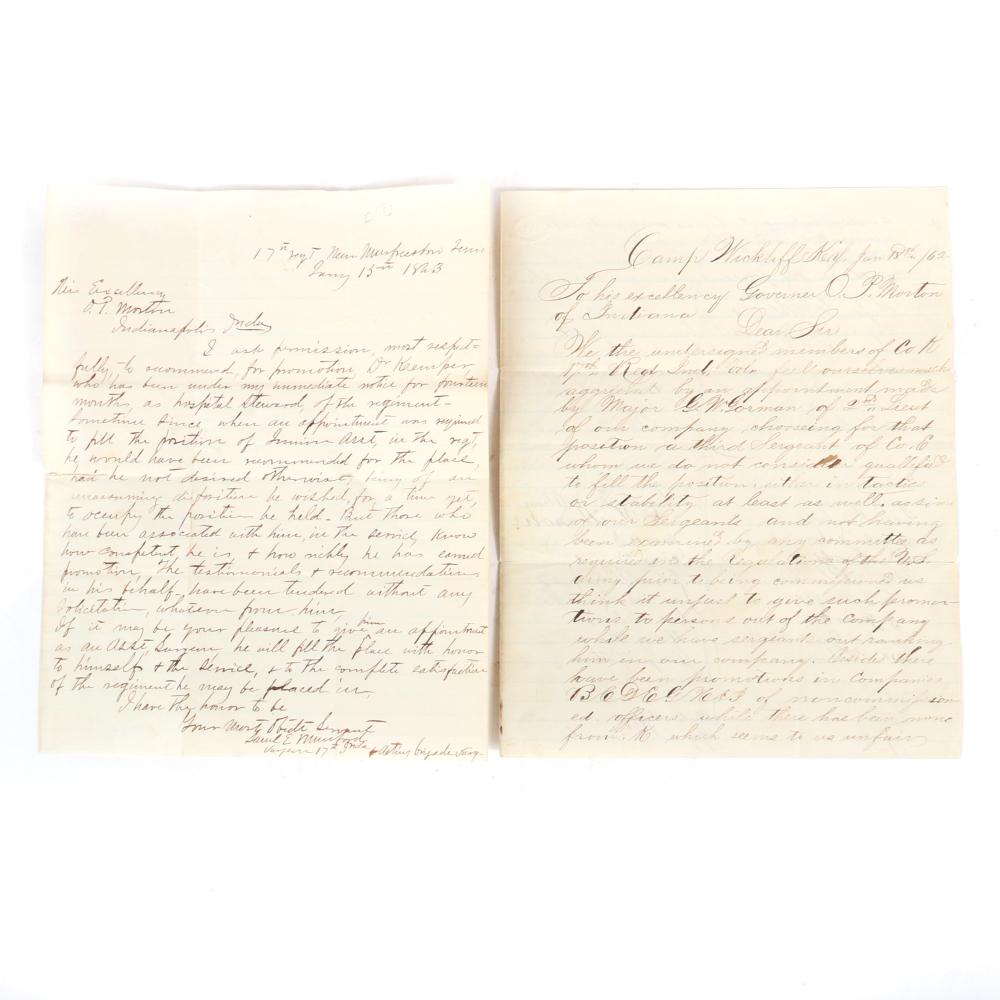 17th regt Near Murfreesboro Tenn
Jany 15th 1863
His Excellency
O. P. Morton
Indianapolis Inda
I ask permission, most respect=
fully, to recommend, for promotion, Dr Kremper
who has been under my immediate notice for fourteen
months, as hospital steward, of the regiment—
Sometime since, when an appointment was required
to fill the position of Asst, in the regt,
he would have been recommended for the place,
had he not desired otherwise, being of an
unassuming disposition he wished, for a time yet,
to occupy the position he held. But those who
have been associated with him, in the service, know
how competent he is, & how richly he has earned
promotion, The testimonials & recommendations
in his behalf, have been tendered without any
solicitation, whatever from him,
If it may be your pleasure to give him an appointment
as an Asst, Surgeon, he will fill the place with honor
to himself & the service, & to the complete satisfaction
of the regiment he may be placed in,
I have thy honor to be
Your Most Obdt Servant
Saml E Munford
Surgeon 17th Inda & Acting brigade Surg
Camp Wickliff Ky. Jan /62
To his excellency Governer O. P. Morton
of Indiana
Dear Sir
We, the undersigned members of Co K
17th Regt Ind. Vol. feel ourselves much
aggrieved by an appointment made
by Major G. W. Gorman of 2nd Lieut
of our company choosing for that
position a third Sergeant of Co. E
whom we do not consider qualified
to fill the position, either in tactics
or stability at least as well as
of our Sergeants and not having
been examined by any committee as
required in the regulations of the U.S.
army prior to being commissioned us
think it unjust to give such promo-
tions to persons out of the company
while we have sergeant outranking
him in our company. Besides there
have been promotions in Companies
B C D E G H & I of noncommission
ed. officers while there has been none
from K which seems to us unfair